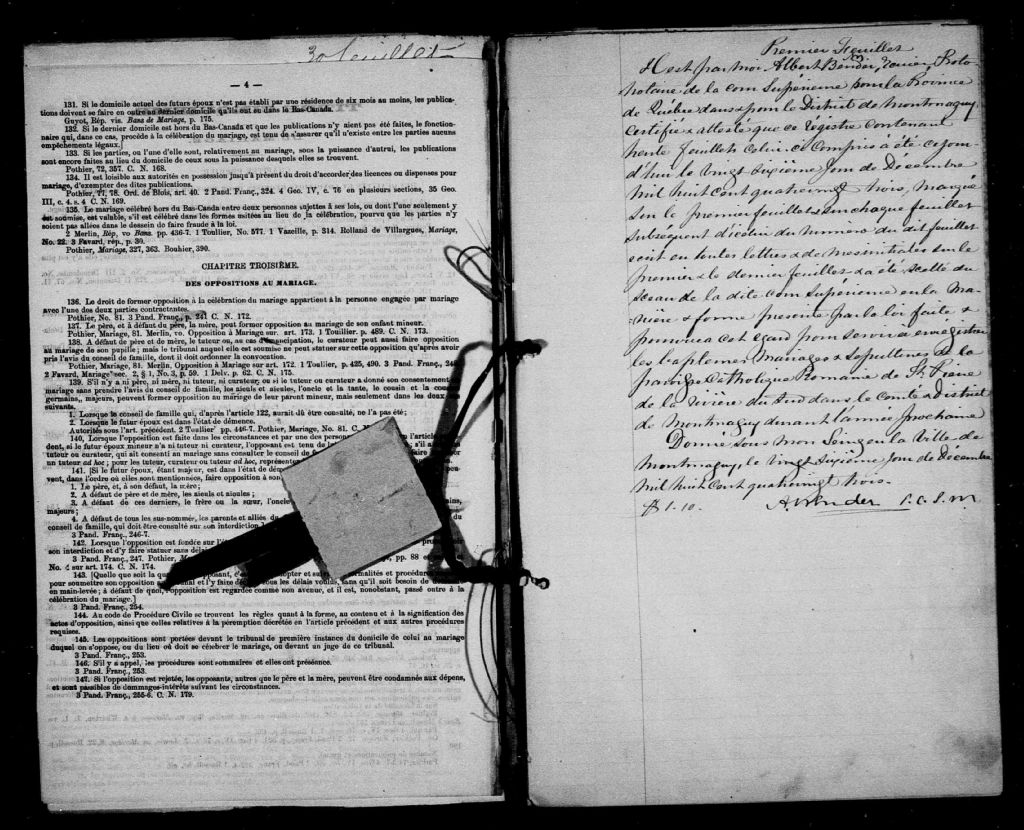 30 feuillets
— 4 —
131. Si le domicile actuel des futurs époux n'est pas établi par une résidence de six mois au moins, les publica-
tions doivent se faire en outre au dernier domicile qu'ils ont eu dans le Bas-Canada.
Guyot, Rép. vis. Bans de Mariage, p. 175.
132. Si le dernier domicile est hors du Bas-Canada et que les publications n'y aient pas été faites, le fonction-
naire qui, dans ce cas, procède à la célébration du mariage, est tenu de s'assurer qu'il n'existe entre les parties aucuns
empêchements légaux.]
133. Si les parties, ou l'une d'elle, sont, relativement au mariage, sous la puissance d'autrui, les publications
sont encore faites au lieu du domicile de ceux sous la puissance desquels elles se trouvent.
Pothier, 72, 357. C. N. 168.
134. Il est loisible aux autorités en possession jusqu'à présent du droit d'accorder des licences ou dispenses pour
mariage, d'exempter des dites publications.
Pothier, 77, 78. Ord. de Blois, art. 40. 2 Pand. Franç., 324. 4 Geo. IV, c. 76 en plusieurs sections, 35 Geo.
III, c. 4. s. 4 C. N. 169.
135. Le mariage célébré hors du Bas-Canada entre deux personnes sujettes à ses lois, ou dont l'une seulement y
est soumise, est valable, s'il est célébré dans les formes usitées au lieu de la célébration, pourvu que les parties n'y
soient pas allées dans le dessein de faire fraude à la loi.
2 Merlin, Rép, vo Bans. pp. 436-7. 1 Toullier, No. 577. 1 Vazeille, p. 314. Rolland de Villargues, Mariage,
No. 22. 3 Favard, rép., p. 30.
Pothier, Mariage, 327, 363. Bouhier, 390.
CHAPITRE TROISIÈME.
DES OPPOSITIONS AU MARIAGE.
136. Le droit de former opposition à la célébration du mariage appartient à la personne engagée par mariage
avec l'une des deux parties contractantes.
Pothier, No. 81. 3 Pand. Franç., p. 241 C. N. 172.
137. Le père, et à défaut du père, la mère, peut former opposition au mariage de son enfant mineur.
Pothier, Mariage, 81. Merlin, vo. Opposition à Mariage sur. art. 173. 1 Touillier. p. 489. C. N. 173.
138. A défaut de père et de mère, le tuteur ou, au cas d'émancipation, le curateur peut aussi faire opposition
au mariage de son pupille; mais le tribunal auquel elle est soumise ne peut statuer sur cette opposition qu'après avoir
pris l'avis du conseil de famille, dont il doit ordonner la convocation.
Pothier, Mariage, 81. Merlin, Opposition à Mariage sur art. 172. 1 Toullier, p. 425, 490. 3 Pand. Franç., 24
2 Favard, Mariage sec. 2, § 1, No. 3, p. 59. 1 Delv. p. 62. C. N. 175.
139. S'il n'y a ni père, ni mère, ni tuteur, ni curateur, ou si le tuteur ou curateur a donné son consentement
mariage sans prendre l'avis du conseil de famille, les aïeuls et aïeules, l'oncle et la tante, le cousin et la cous
germains, majeurs, peuvent former opposition au mariage de leur parent mineur, mais seulement dans les deux
suivants.
1. Lorsque le conseil de famille qui, d'après l'article 122, aurait dû être consulté, ne l'a pas été;
2. Lorsque le futur époux est dans l'état de démence.
Autorités sous l'art. précédent. 2 Toullier pp. 446-7. Pothier, Mariage, No. 81. C.
140, Lorsque l'opposition est faite dans les circonstances et par une des perso l'article
dent, si le futur époux mineur n'a ni tuteur ni curateur, l'opposant est tenu de
tuteur ou curateur, qui ait consenti au mariage sans consulter le conseil de
un tuteur ad hoc; pour les tuteur, curateur ou tuteur ad hoc, représente
141. [Si le futur époux, étant majeur, est dans l'état de démen
vent, dans l'ordre où elles sont mentionnées, faire opposition à son
1. Le père, et, à son défaut, la mère;
2. A défaut de père et de mère, les aïeuls et aïeules;
3. A défaut de ces derniers, le frère ou la sœur, l'oncle
majeurs;
4. A défaut de tous les sus-nommés, les parents et alliés du
conseil de famille, qui doit être consulté sur son interdiction
3 Pand. Franç., 246-7.
142. Lorsque l'opposition est fondée sur l'é
son interdiction et d'y faire statuer sans délai
3 Pand. Franç., 247. Pothier, M pp. 88 e
No. 4 sur art. 174. C. N. 174.
143. [Quelle que soit la qu
pour soumettre son opposition
en main-levée; à défaut de quoi, l'opposition est regardée comme non avenue, et il est, nonobstant, passé outre à la
célébration du mariage.]
3 Pand. Franç., 254.
144. Au code de Procédure Civile se trouvent les règles quant à la forme, au contenu et à la signification des
actes d'opposition, ainsi que celles relatives à la péremption décrétée en l'article précédent et aux autres procédures
requises.
145. Les oppositions sont portées devant le tribunal de première instance du domicile de celui au mariage
duquel on s'oppose, ou du lieu où doit se célébrer le mariage, ou devant un juge de ce tribunal.
3 Pand. Franç., 253.
146. S'il y a appel, les procédures sont sommaires et elles ont préséance.
3 Pand. Franç., 253.
147. Si l'opposition est rejetée, les opposants, autres que le père et la mère, peuvent être condamnés aux dépens,
et sont passibles de dommages-intérêts suivant les circonstances.
3 Pand. Franç., 255-6. C. N. 179.
Premier Feuillet
Albert Bender, Proto-
notaire de la Cour Supérieure pour la Province
de Québec dans & pour le District de Montmagny,
certifie & atteste que ce régistre contenant
trente feuillets celui-ci compris a été cejour-
d'hui le vingt sixième jour de Décembre
mil huit cent quatrevingt trois, marqué
sur le premier feuillet & sur chaque feuillet
subséquent d'icelui du numero du dit feuillet
écrit en toutes lettres & de mes initiales sur le
premier & le dernier feuillet & a été scellé du
sceau de la dite Cour Supérieure en la ma-
nière & forme prescrite par la loi faite &
pourvue à cet égard pour servir à enregistrer
les baptêmes Mariages & Sépultures de la
paroisse Catholique Romaine de St. Pierre
de la rivière du Sud dans le comté & District
de Montmagny durant l'année prochaine
Donné sous mon seing en la Ville de
Montmagny, le vingt sixième jour de Décembre
mil huit cent quatrevingt trois.
$1.10. A Bender P. C. S. M